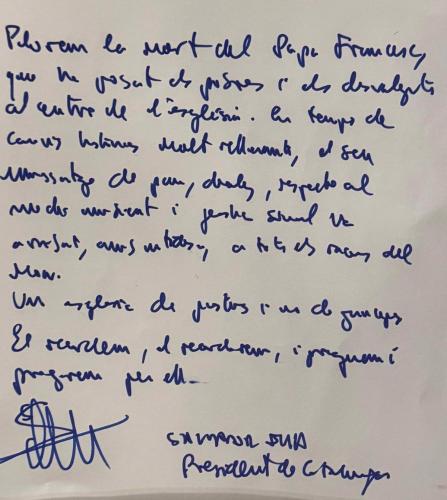 Plorem la mort del Papa Francesc,
que ha posat els pobres i els desvalguts
al centre de l'església. En temps de
canvis històrics molt rellevants, el seu
missatge de pau, diàleg, respecte al
medi ambient i justícia social va
arribat, a tots els racons del
Mon.
Un església de pastors i no de
El recordem, el recordarem, i preguem i
pregarem per ell.
SALVADOR ILLA
President de Catalunya